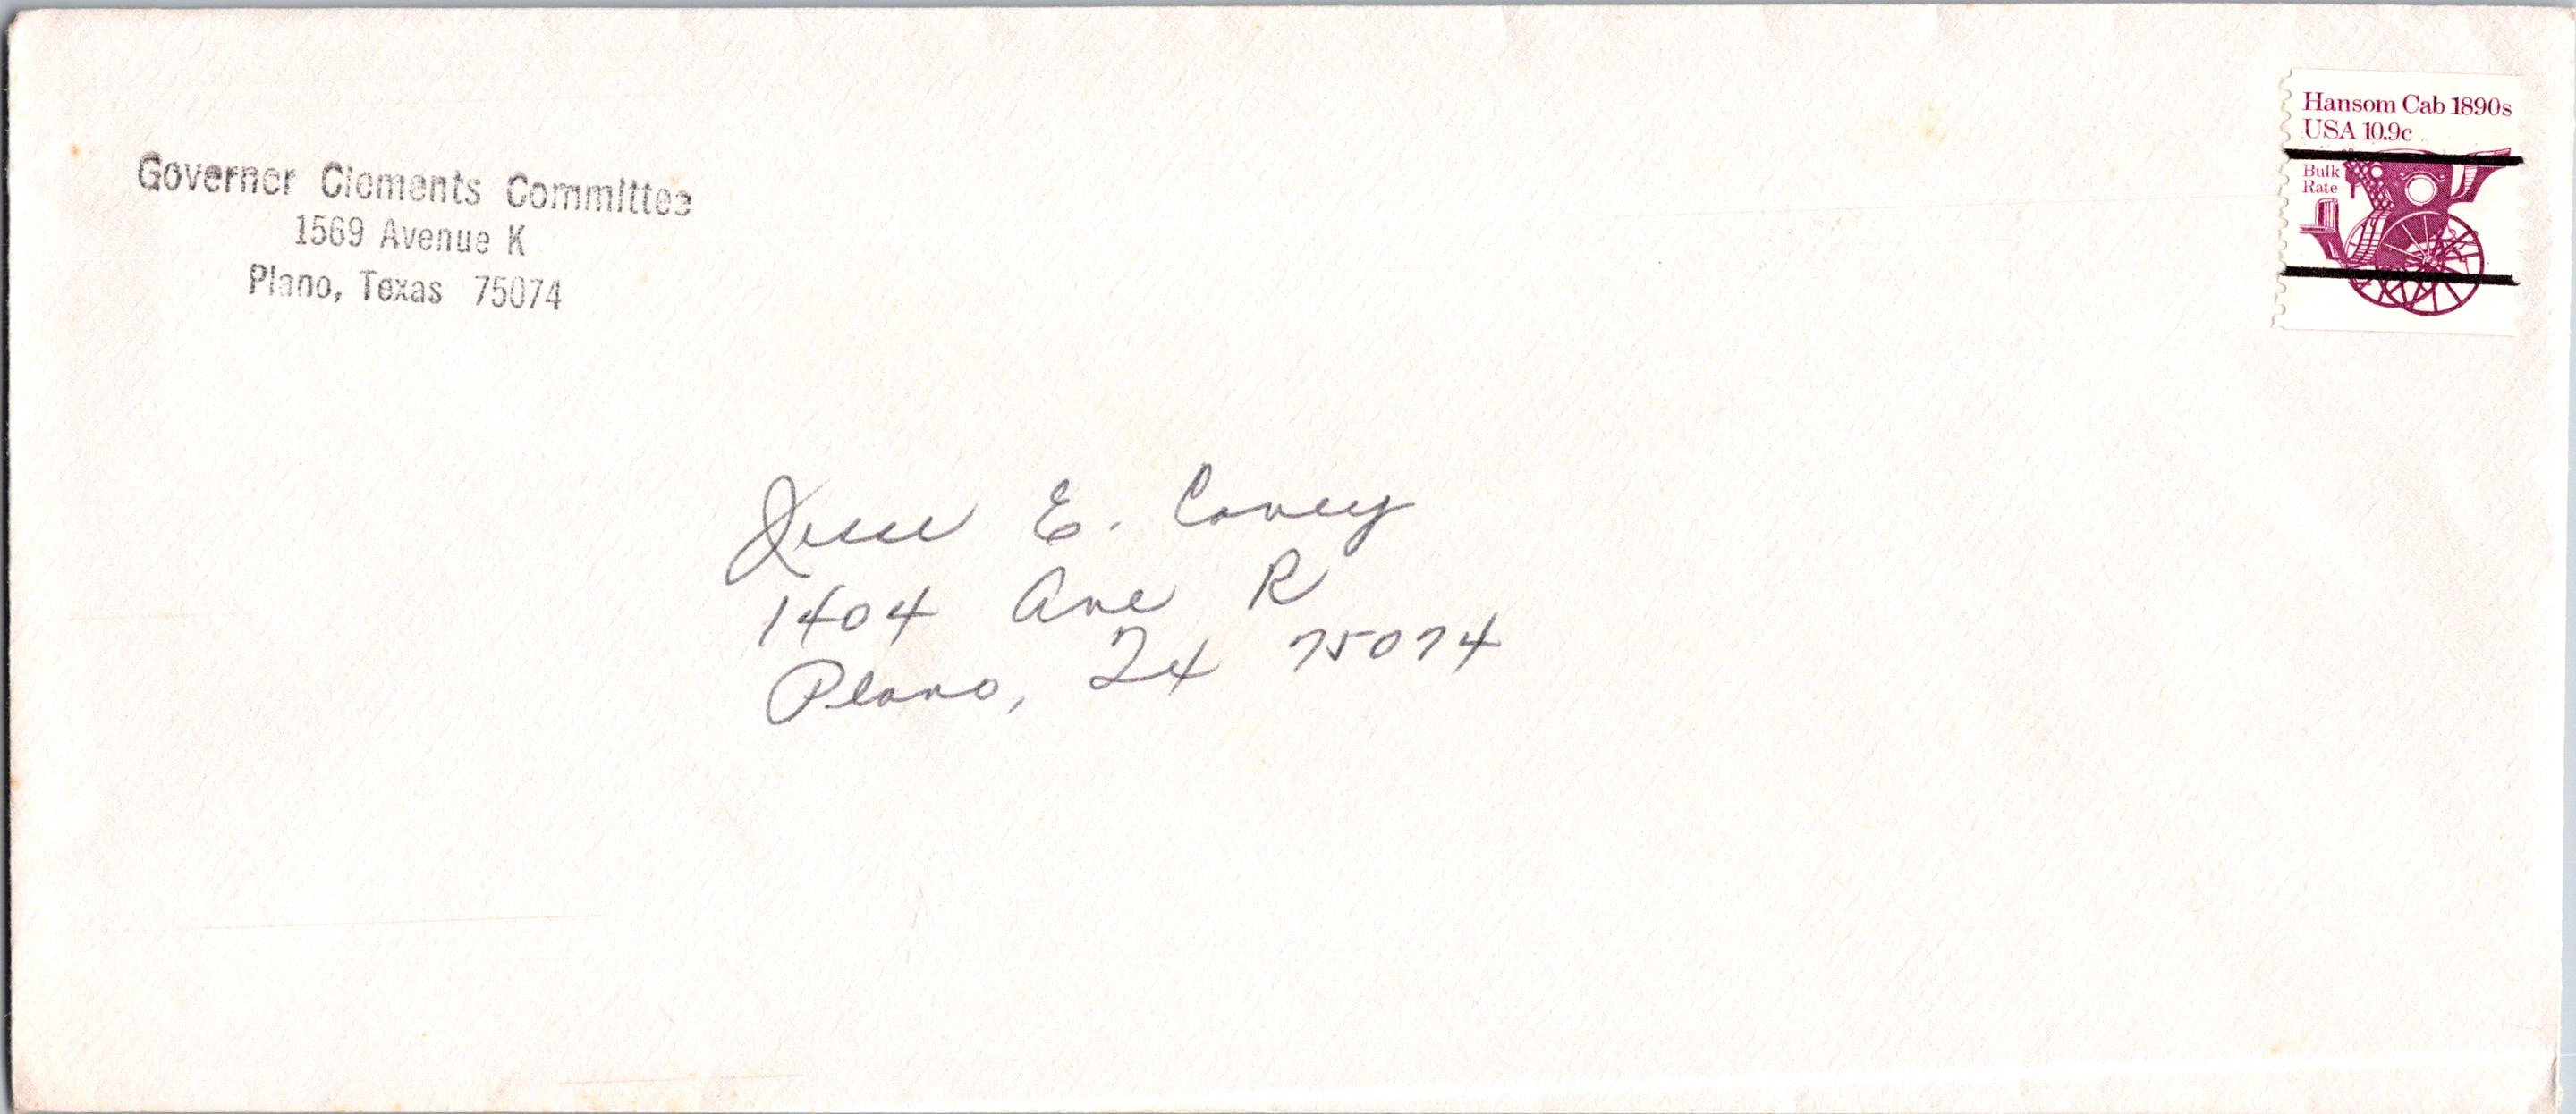 Governor Clements Committee
1569 Avenue K
Plano, Texas 75074
Hansom Cab 1890s
USA 10.9c
Bulk
Rate
Jesse E. Coney
1404 Ave R
Plano, Tx 75074